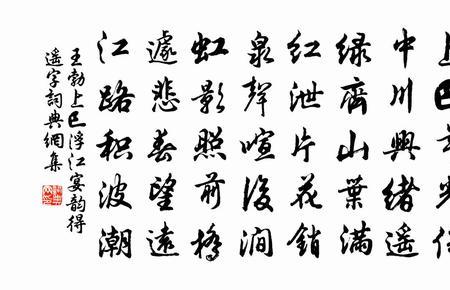 上巳
中川興緒遥
绿齊山葉满
紅泄片花銷
泉聲喧後澗
虹影照前橋
遽悲春望遠
江路积波潮
王勃上巳浮江宴韵得
遥字詞典網集